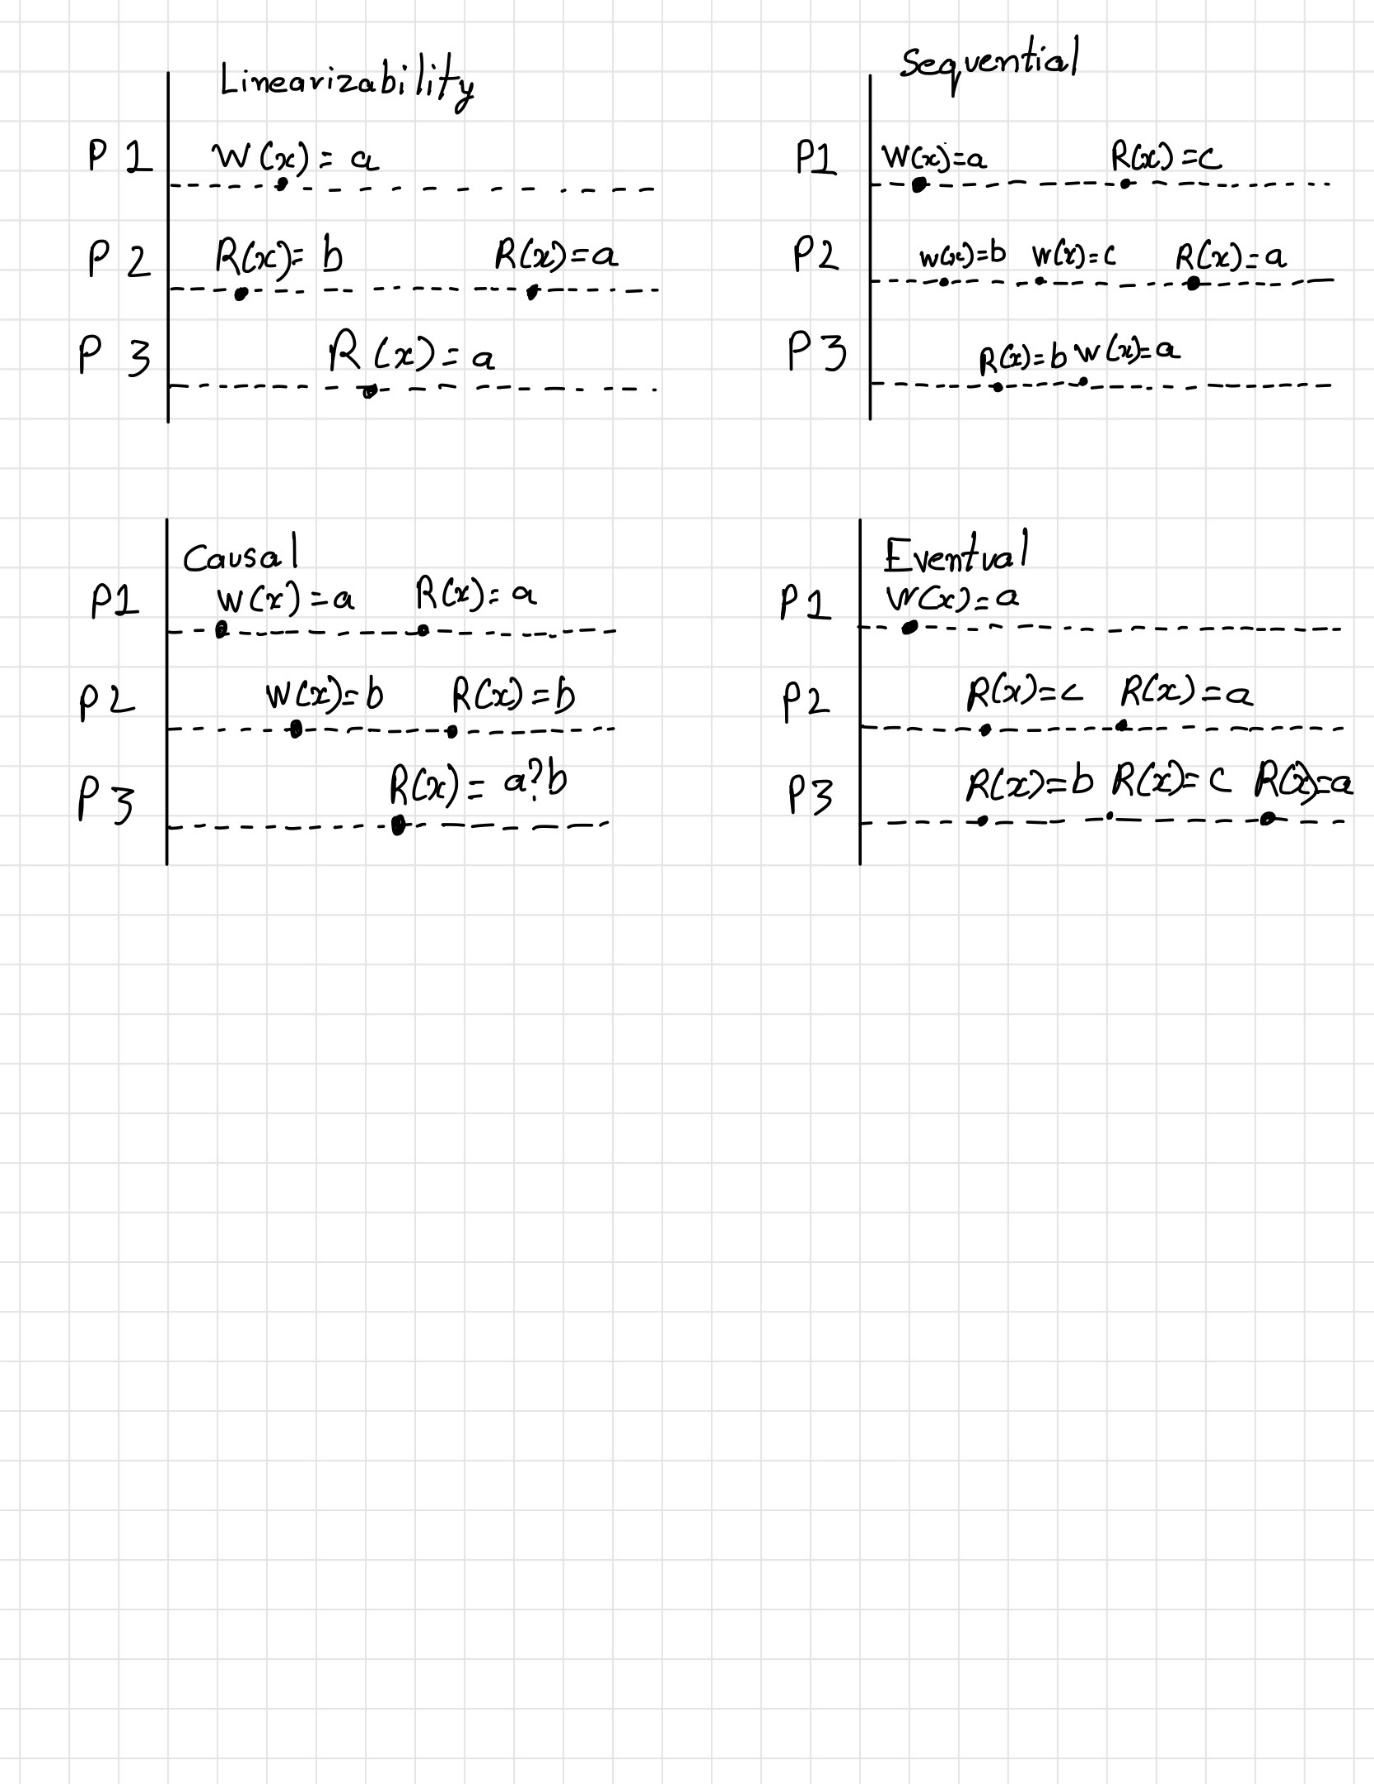 Linearizability
P1 W(x) = a
P2 R(x)= b R(x)=a
P3 R(x)=a
Sequential
P1 W(x)=a R(x)=c
P2 w(x)=b w(x)=c R(x)=a
P3 R(x)=b W(x)=a
Causal
P1 W(x)=a R(x)=a
P2 W(x)=b R(x)=b
P3 R(x)= a?b
Eventual
P1 W(x)=a
P2 R(x)=c R(x)=a
P3 R(x)=b R(x)=c R(x)=a